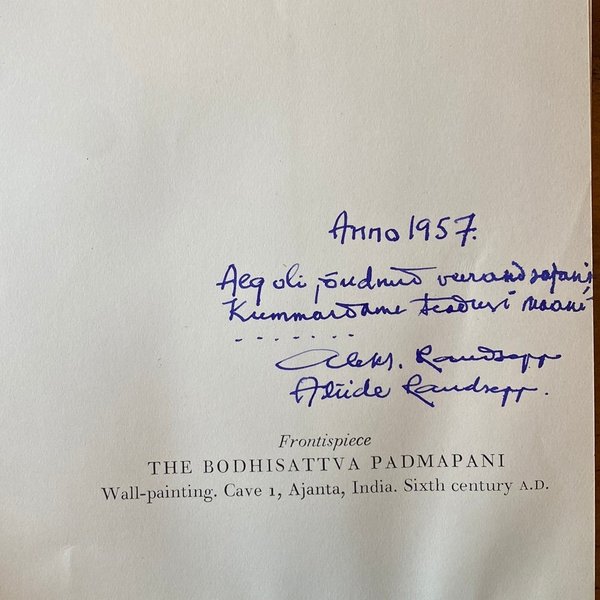 Anno 1957.
Aeg oli jõudnud veerandsajani
Kummardame teadusi
. . . . . . .
Aleks. Raudsepp
Alüide Raudsepp.
Frontispiece
THE BODHISATTVA PADMAPANI
Wall-painting. Cave 1, Ajanta, India. Sixth century A.D.